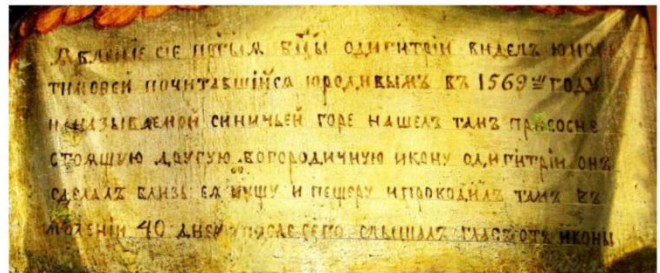 Явленіе сіе пр҃тыя Бцы Одигитріи виделъ юнош
Тимофей почитавшійся юродивымъ въ 1569ᵐ году
на называемой синичьей горе нашелъ тамъ при сосне
стоящую другую богородичную икону одигитріи онъ
сделалъ близь ея кущу и пещеру и проходилъ тамъ въ
молении 40 дней после сего слышалъ гласъ отъ иконы